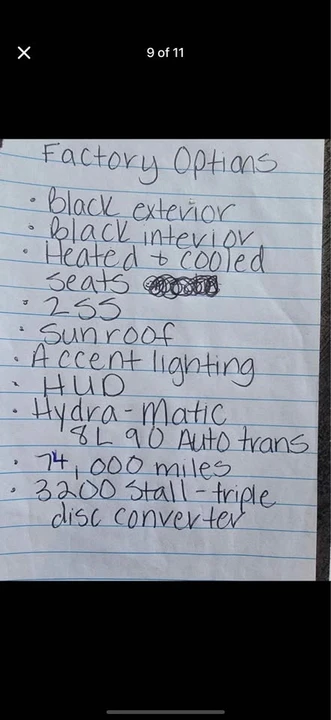 9 of 11
Factory Options
• Black exterior
• Black interior
• Heated + cooled
seats
• 2SS
• Sunroof
• Accent lighting
• HUD
• Hydra-Matic
8L90 Auto trans
• 74,000 miles
• 3200 Stall-triple
disc converter